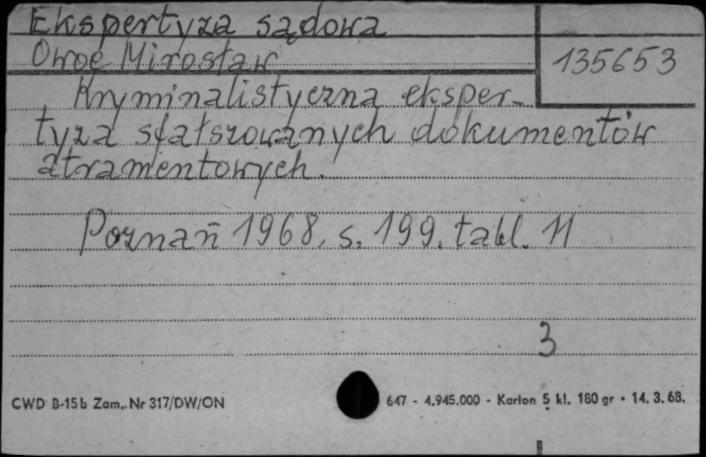 Ekspertyza sądowa
Owoc Mirosław
135653
Kryminalistyczna eksper-
tyza sfałszowanych dokumentów
atramentowych.
Poznań 1968, s. 199, tabl. 11
3
CWD B-15b Zam. Nr 317/DW/ON
647 - 4.945.000 - Karton 5 kl. 180 gr • 14. 3. 68.